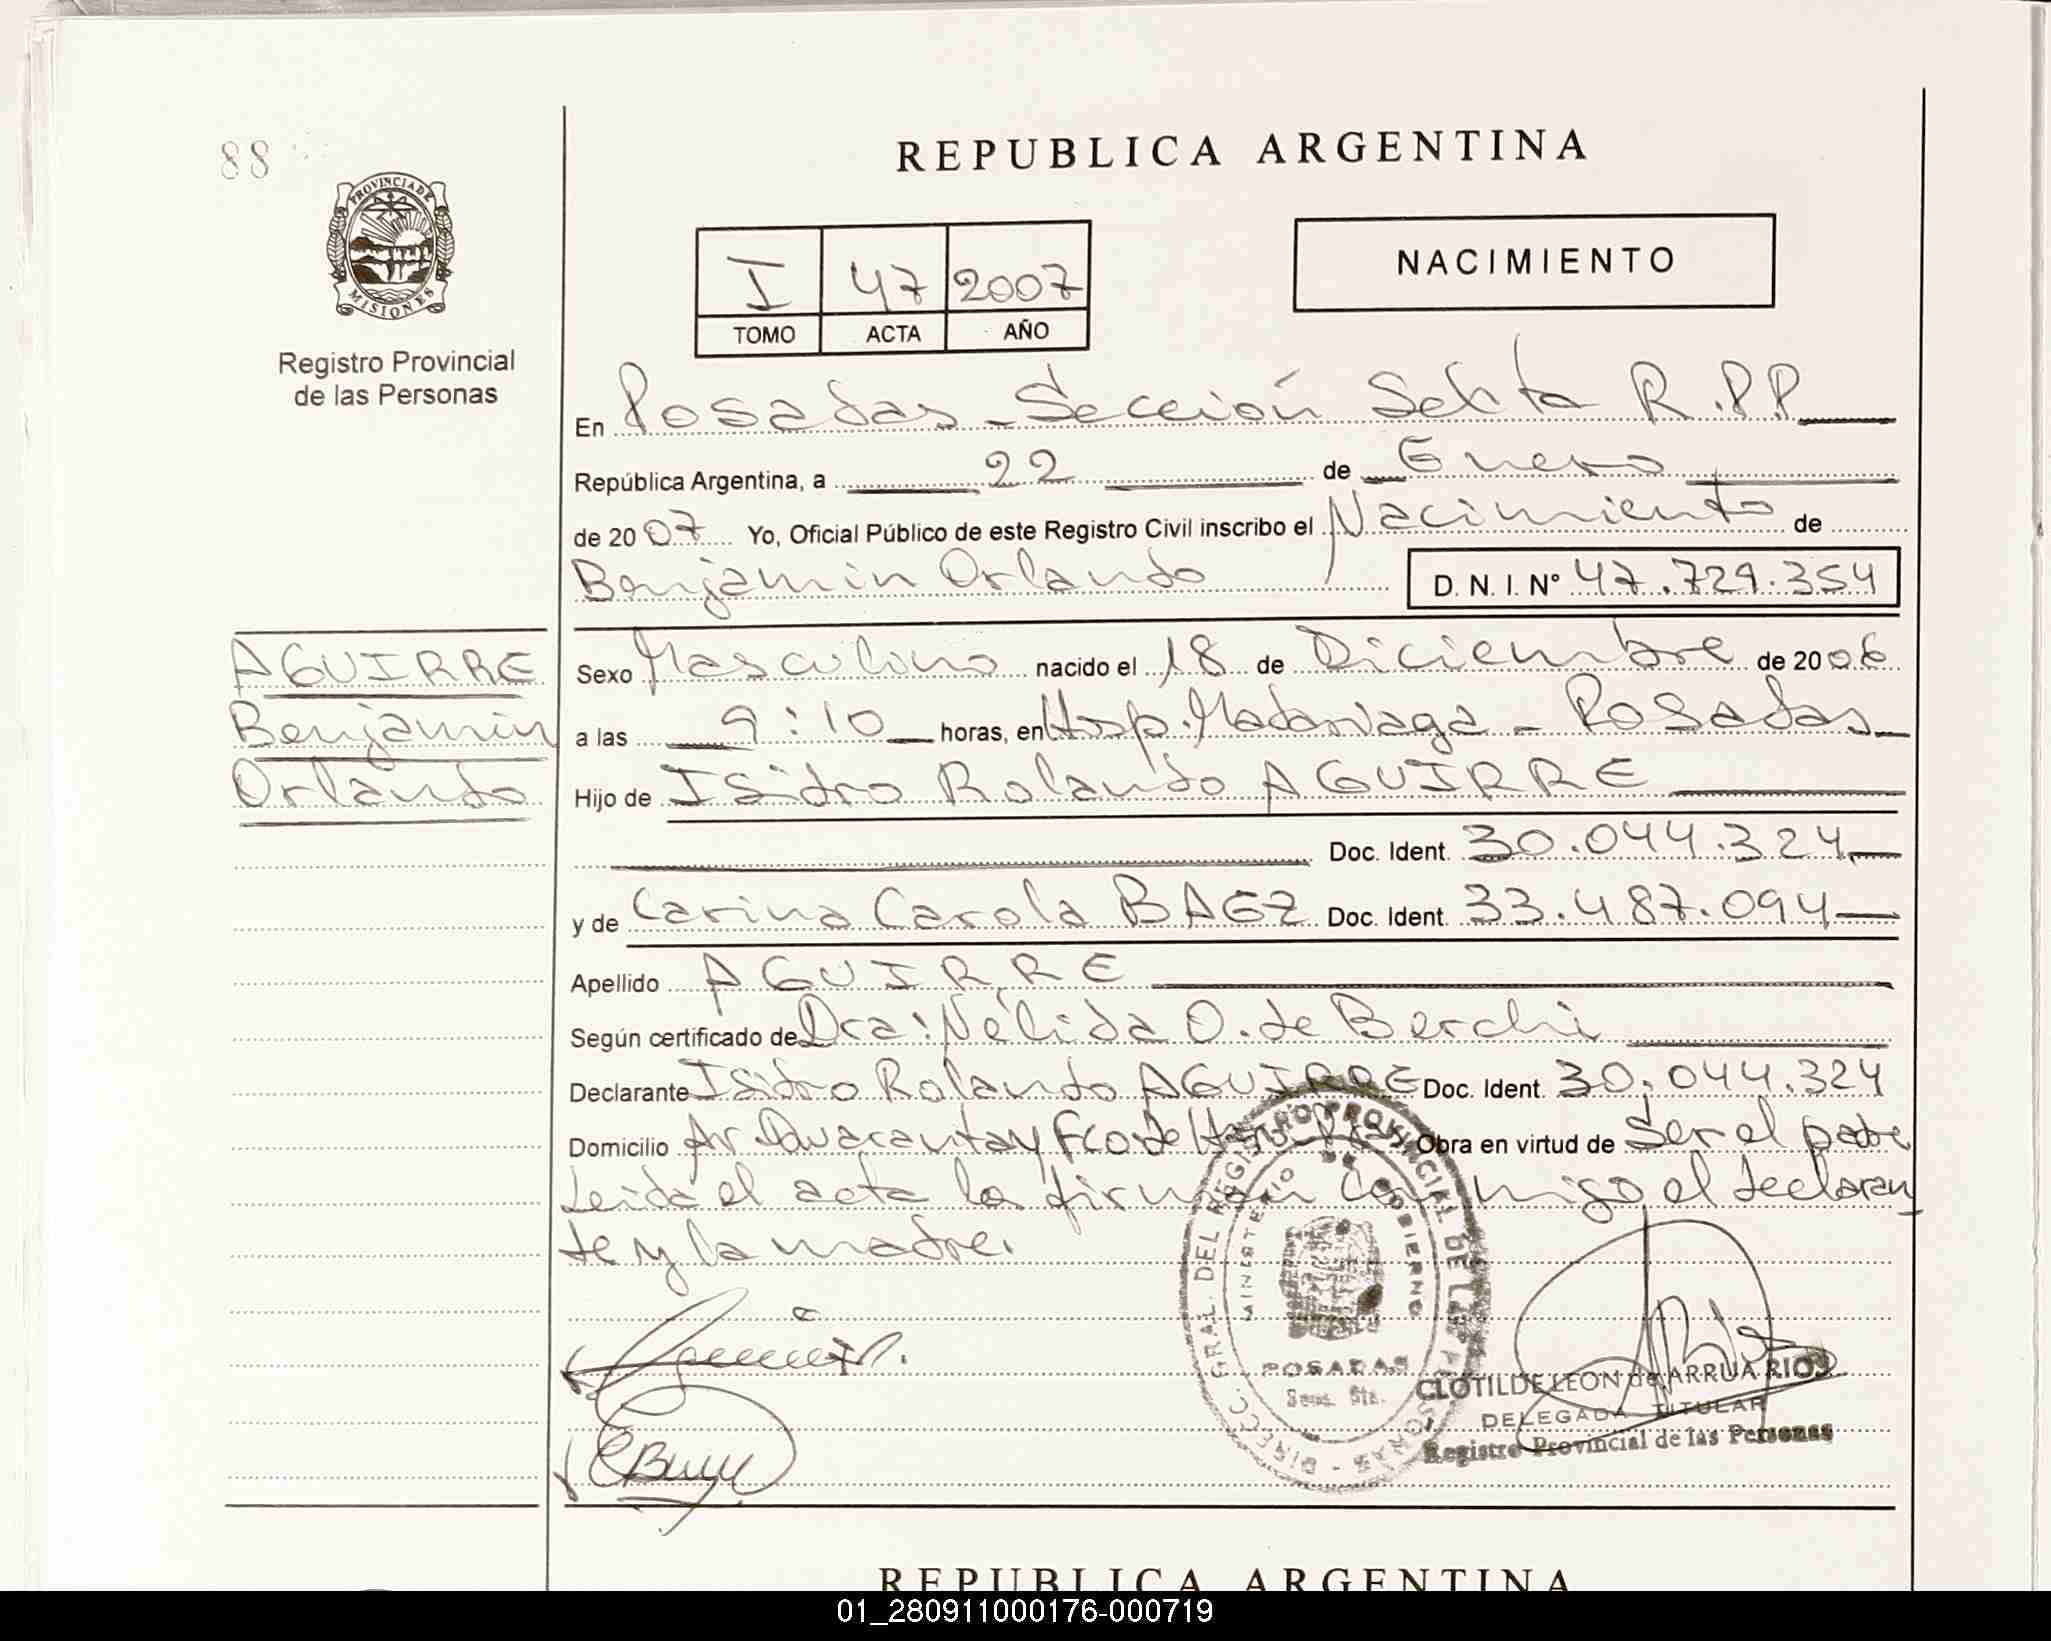 88
PROVINCIA DE
MISIONES
Registro Provincial
de las Personas
REPUBLICA ARGENTINA
I 47 2007
TOMO ACTA AÑO
NACIMIENTO
En Posadas - Sección Sexta R.P.P.
República Argentina, a 22 de Enero
de 2007 Yo, Oficial Público de este Registro Civil inscribo el Nacimiento de
Benjamin Orlando D. N. I. Nº 47.729.354
AGUIRRE
Benjamin
Orlando
Sexo Masculino nacido el 18 de Diciembre de 2006
a las 9:10 horas, en Hosp. Madariaga - Posadas
Hijo de Isidro Rolando AGUIRRE
Doc. Ident. 30.044.324
y de Carina Carola BAEZ Doc. Ident. 33.487.094
Apellido AGUIRRE
Según certificado de Dra: Nélida O. de Berchi
Declarante Isidro Rolando AGUIRRE Doc. Ident. 30.044.324
Domicilio Av. y Fco de Obra en virtud de Ser el padre
Leida el acta la firman conmigo el declaran
te y la madre.
DIRECC. GRAL. DEL REGISTRO PROVINCIAL DE LAS PERSONAS
MINISTERIO GOBIERNO
POSADAS
CLOTILDE LEON de ARRUA RIOS
DELEGADA TITULAR
Registro Provincial de las Personas
REPUBLICA ARGENTINA
01_280911000176-000719